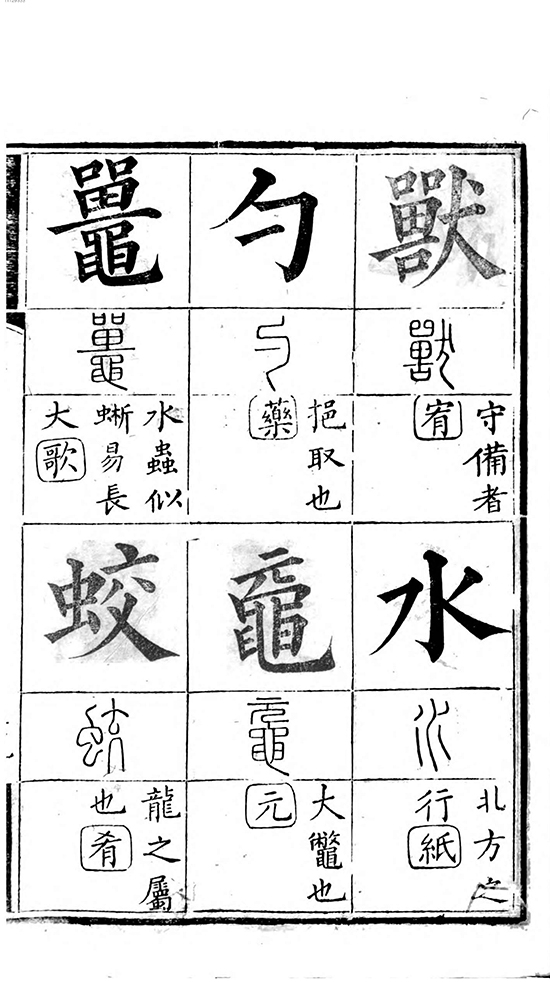 獸
獸
守備者
宥
水
水
北方之
行紙
勺
勺
挹取也
藥
黿
黿
大鼈也
元
鼉
鼉
水蟲似
蜥易長
大歌
蛟
蛟
龍之屬
也肴